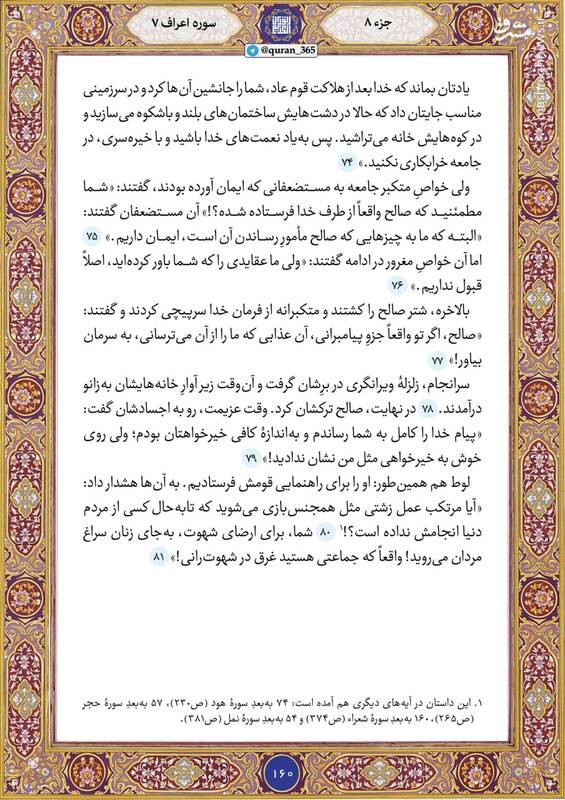 جزء ۸
سوره اعراف ۷
@quran_365
یادتان بماند که خدا بعد از هلاکت قوم عاد، شما را جانشین آن‌ها کرد و در سرزمینی
مناسب جایتان داد که حالا در دشت‌هایش ساختمان‌های بلند و باشکوه می‌سازید و
در کوه‌هایش خانه می‌تراشید. پس به‌یاد نعمت‌های خدا باشید و با خیره‌سری، در
جامعه خرابکاری نکنید.» ۷۴
ولی خواصِ متکبر جامعه به مستضعفانی که ایمان آورده بودند، گفتند: «شما
مطمئنید که صالح واقعاً از طرف خدا فرستاده شده؟!» آن مستضعفان گفتند:
«البته که ما به چیزهایی که صالح مأمورِ رساندن آن است، ایمان داریم.» ۷۵
اما آن خواصِ مغرور در ادامه گفتند: «ولی ما عقایدی را که شما باور کرده‌اید، اصلاً
قبول نداریم.» ۷۶
بالاخره، شتر صالح را کشتند و متکبرانه از فرمان خدا سرپیچی کردند و گفتند:
«صالح، اگر تو واقعاً جزوِ پیامبرانی، آن عذابی که ما را از آن می‌ترسانی، به سرمان
بیاور!» ۷۷
سرانجام، زلزلهٔ ویرانگری در برِشان گرفت و آن‌وقت زیر آوارِ خانه‌هایشان به‌زانو
درآمدند. ۷۸ در نهایت، صالح ترکشان کرد. وقت عزیمت، رو به اجسادشان گفت:
«پیام خدا را کامل به شما رساندم و به‌اندازهٔ کافی خیرخواهتان بودم؛ ولی روی
خوش به خیرخواهی مثل من نشان ندادید!» ۷۹
لوط هم همین‌طور: او را برای راهنمایی قومش فرستادیم. به آن‌ها هشدار داد:
«آیا مرتکب عمل زشتی مثل همجنس‌بازی می‌شوید که تابه‌حال کسی از مردم
دنیا انجامش نداده است؟!۱ ۸۰ شما، برای ارضای شهوت، به‌جای زنان سراغ
مردان می‌روید! واقعاً که جماعتی هستید غرق در شهوت‌رانی!» ۸۱
۱. این داستان در آیه‌های دیگری هم آمده است: ۷۴ به‌بعدِ سورهٔ هود (ص۲۳۰)، ۵۷ به‌بعدِ سورهٔ حجر
(ص۲۶۵)، ۱۶۰ به‌بعدِ سورهٔ شعراء (ص۳۷۴) و ۵۴ به‌بعدِ سورهٔ نمل (ص۳۸۱).
۱۶۰